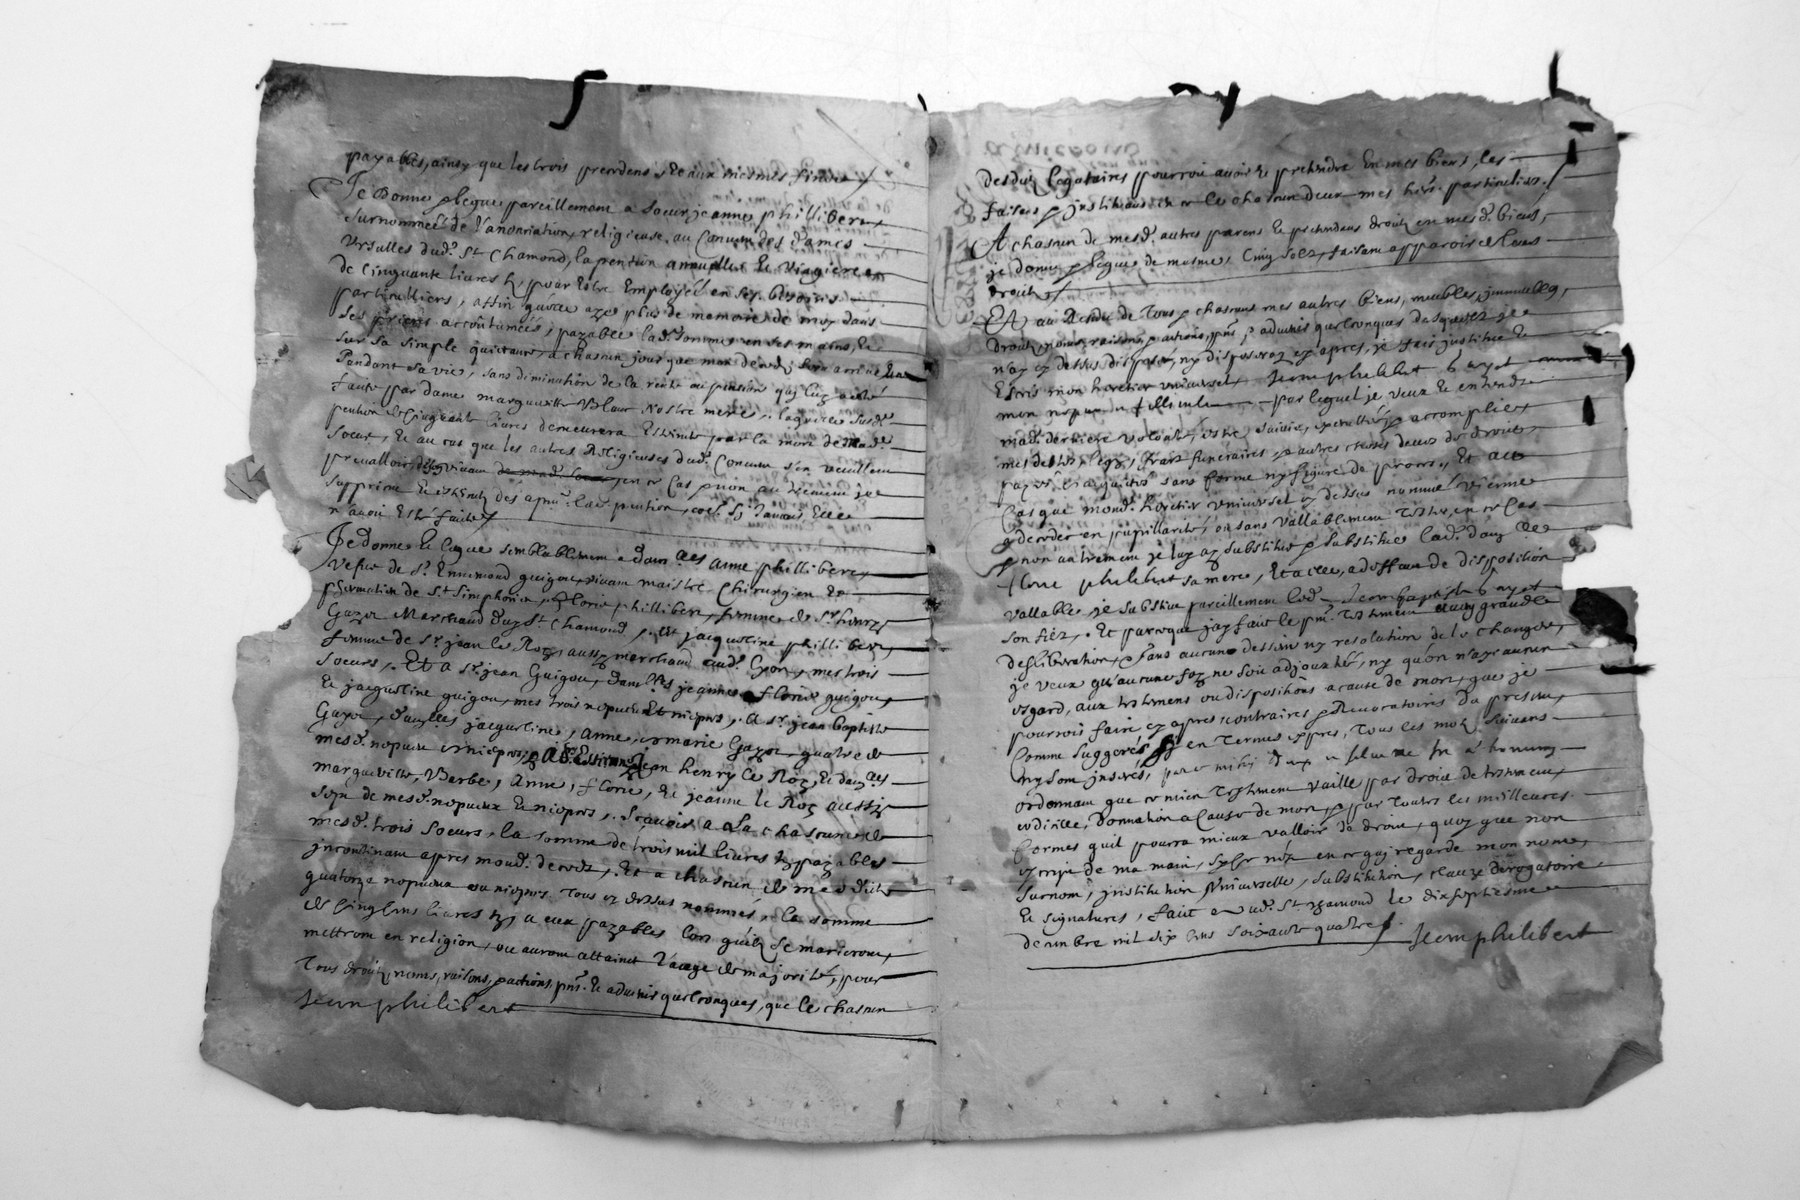 payables, ainsy que les trois precedens et aux mesmes fins
Je Donne & legue pareillement a Soeur jeanne phillibert
surnommeé de l'anonciation, religieuse au Convent des dames
Ursulles dud. St Chamond, la pention annuelle et viagere
de Cinquante livres pour estre Employeé en ses besoins
particulliers, affin qu'elle aye plus de memoire de moy dans
ses prieres accoûtumeés, payable lad. somme en ses mains, et
sur sa simple quictance, a chascun jour que mon decedz sera arrivé
Pendant sa vie, sans diminution de la rente ou pension quj luy a esté
faite par dame marguerite nostre mere, laquelle susd.
pention de Cinquante livres demeurera Esteinte par la mort de mad.
Soeur, Et au cas que les autres Religieuses dud. Convent s'en veuillent
prevalloir en ce Cas & non autrement je
supprime et esteintz des a pnt. lad. pention, Comme Sy jamais Elle
n'avoit Esté faite
Je donne et legue semblablement a dam.lles anne phillibert
Vefue de Sr. Ennemond guigou, vivant maistre Chirurgien de
St. Simphorien, florie phillibert, femme de Sr. henry
Gayot Marchand dudt St Chamond, Et jacqueline phillibert,
femme de Sr. jean le Roy, aussy marchand aud. Lyon, mes trois
soeurs, Et a Sr. jean Guigou, dam.lles jeanne florie guigou,
Et jacqueline guigou, mes trois nepveux Et niepces, a Sr. jean baptiste
Gayot, dam.lles jacqueline, anne, et marie Gayot, quatre de
mesd. nepveux et niepces, a Sr. Estienne jean henry le Roy, et dam.lles
marguerite, Berbe, Anne, florie, Et jeanne le Roy aussy
sept de mesd. nepveux et niepces, Sçavoir a La chascune de
mesd. trois Soeurs, la somme de trois mil livres payables
incontinant apres mond. decedz, Et a chascun de mesdits
quatorze nepveux ou niepces, tous cy dessus nommés, la somme
de Cinq Cens livres a eux payables lors qu'ilz se marieront,
mettront en religion, ou auront attaint l'aage de majorité, pour
Tous droitz, noms, raisons, pactions, pnt. et advenir quelconques, que le chascun
Jean philibert
desduitz legataires pourroit avoir et prethendre en mes biens, les
faisant & instituant en ce le chascun deux mes hers. particuliers.
A chascun de mesd. autres parens et prethendans droitz en mesd. biens,
je donne & legue de mesme, Cinq Solz, faisant apparoir de leurs
droitz
Et au Residu de Tous & chascuns mes autres biens, meubles, immeubles,
droitz, noms, raisons, & actions, pnts. & advenir quelconques desquelz je
n'ay cy dessus disposé, ny disposeray cy apres, je fais jnstitue et
Estris mon heretier universel, Jean philibert Gayot
mon nepveu & filleul par lequel je veux et entendz
mad. derniere volonté estre suivie, executteé & accomplie
mes debtes, legz, frais funeraires & autres choses deues de droit
payés & acquités sans forme ny figure de procez, Et au
Cas que mond. heretier universel cy dessus nommé vienne
a deceder en pupillarité, ou sans vallablement Tester, en ce Cas
& non autrement je luy ay substitué & substitue lad. dam.lle
florie philibert sa mere, Et a elle, a deffaut de disposition
vallable, je substitue pareillement led. Jean baptiste Gayot
son filz. Et parce que j'ay fait le pnt. testament avec grande
desliberation, & sans aucun dessein ny resolution de le changer,
je veux qu'aucune foy ne soit adjoutée, ny qu'on n'aye aucun
esgard, aux testamens ou dispositions a cause de mort, que je
pourrois faire cy apres, contraires & Revocatoires du present,
Comme suggerés sy en termes expres, Tous les motz suivans
ny sont jnserés,
ordonnant que ce mien testament vaille par droit de testament,
codicille, Donnation a Cause de mort, & par toutes les meilleures
formes quil pourra mieux valloir de droit, quoy que non
escript de ma main, sinon en ce quj regarde mon nom,
surnom, jnstitution universelle, substitution, clauze derogatoire,
Et signatures, faict aud. St. chamond le dixseptiesme
decembre mil six cens soixante quatre
Jean philibert